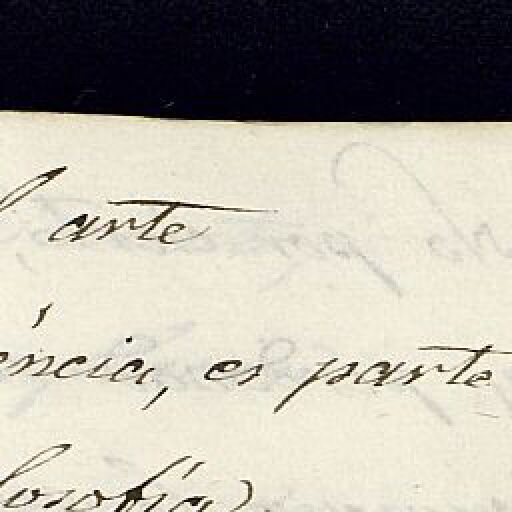 l arte
éncia, es parte
losofía)